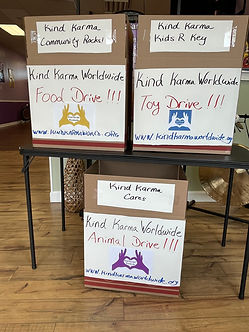 Kind Karma
Community Rocks!
Kind Karma Worldwide
Food Drive !!!
www.kindkarmaworld.org
Kind Karma
Kids R Key
Kind Karma Worldwide
Toy Drive !!!
www.kindkarmaworldwide.org
Kind Karma
Cares
Kind Karma Worldwide
Animal Drive !!!
www.kindkarmaworldwide.org